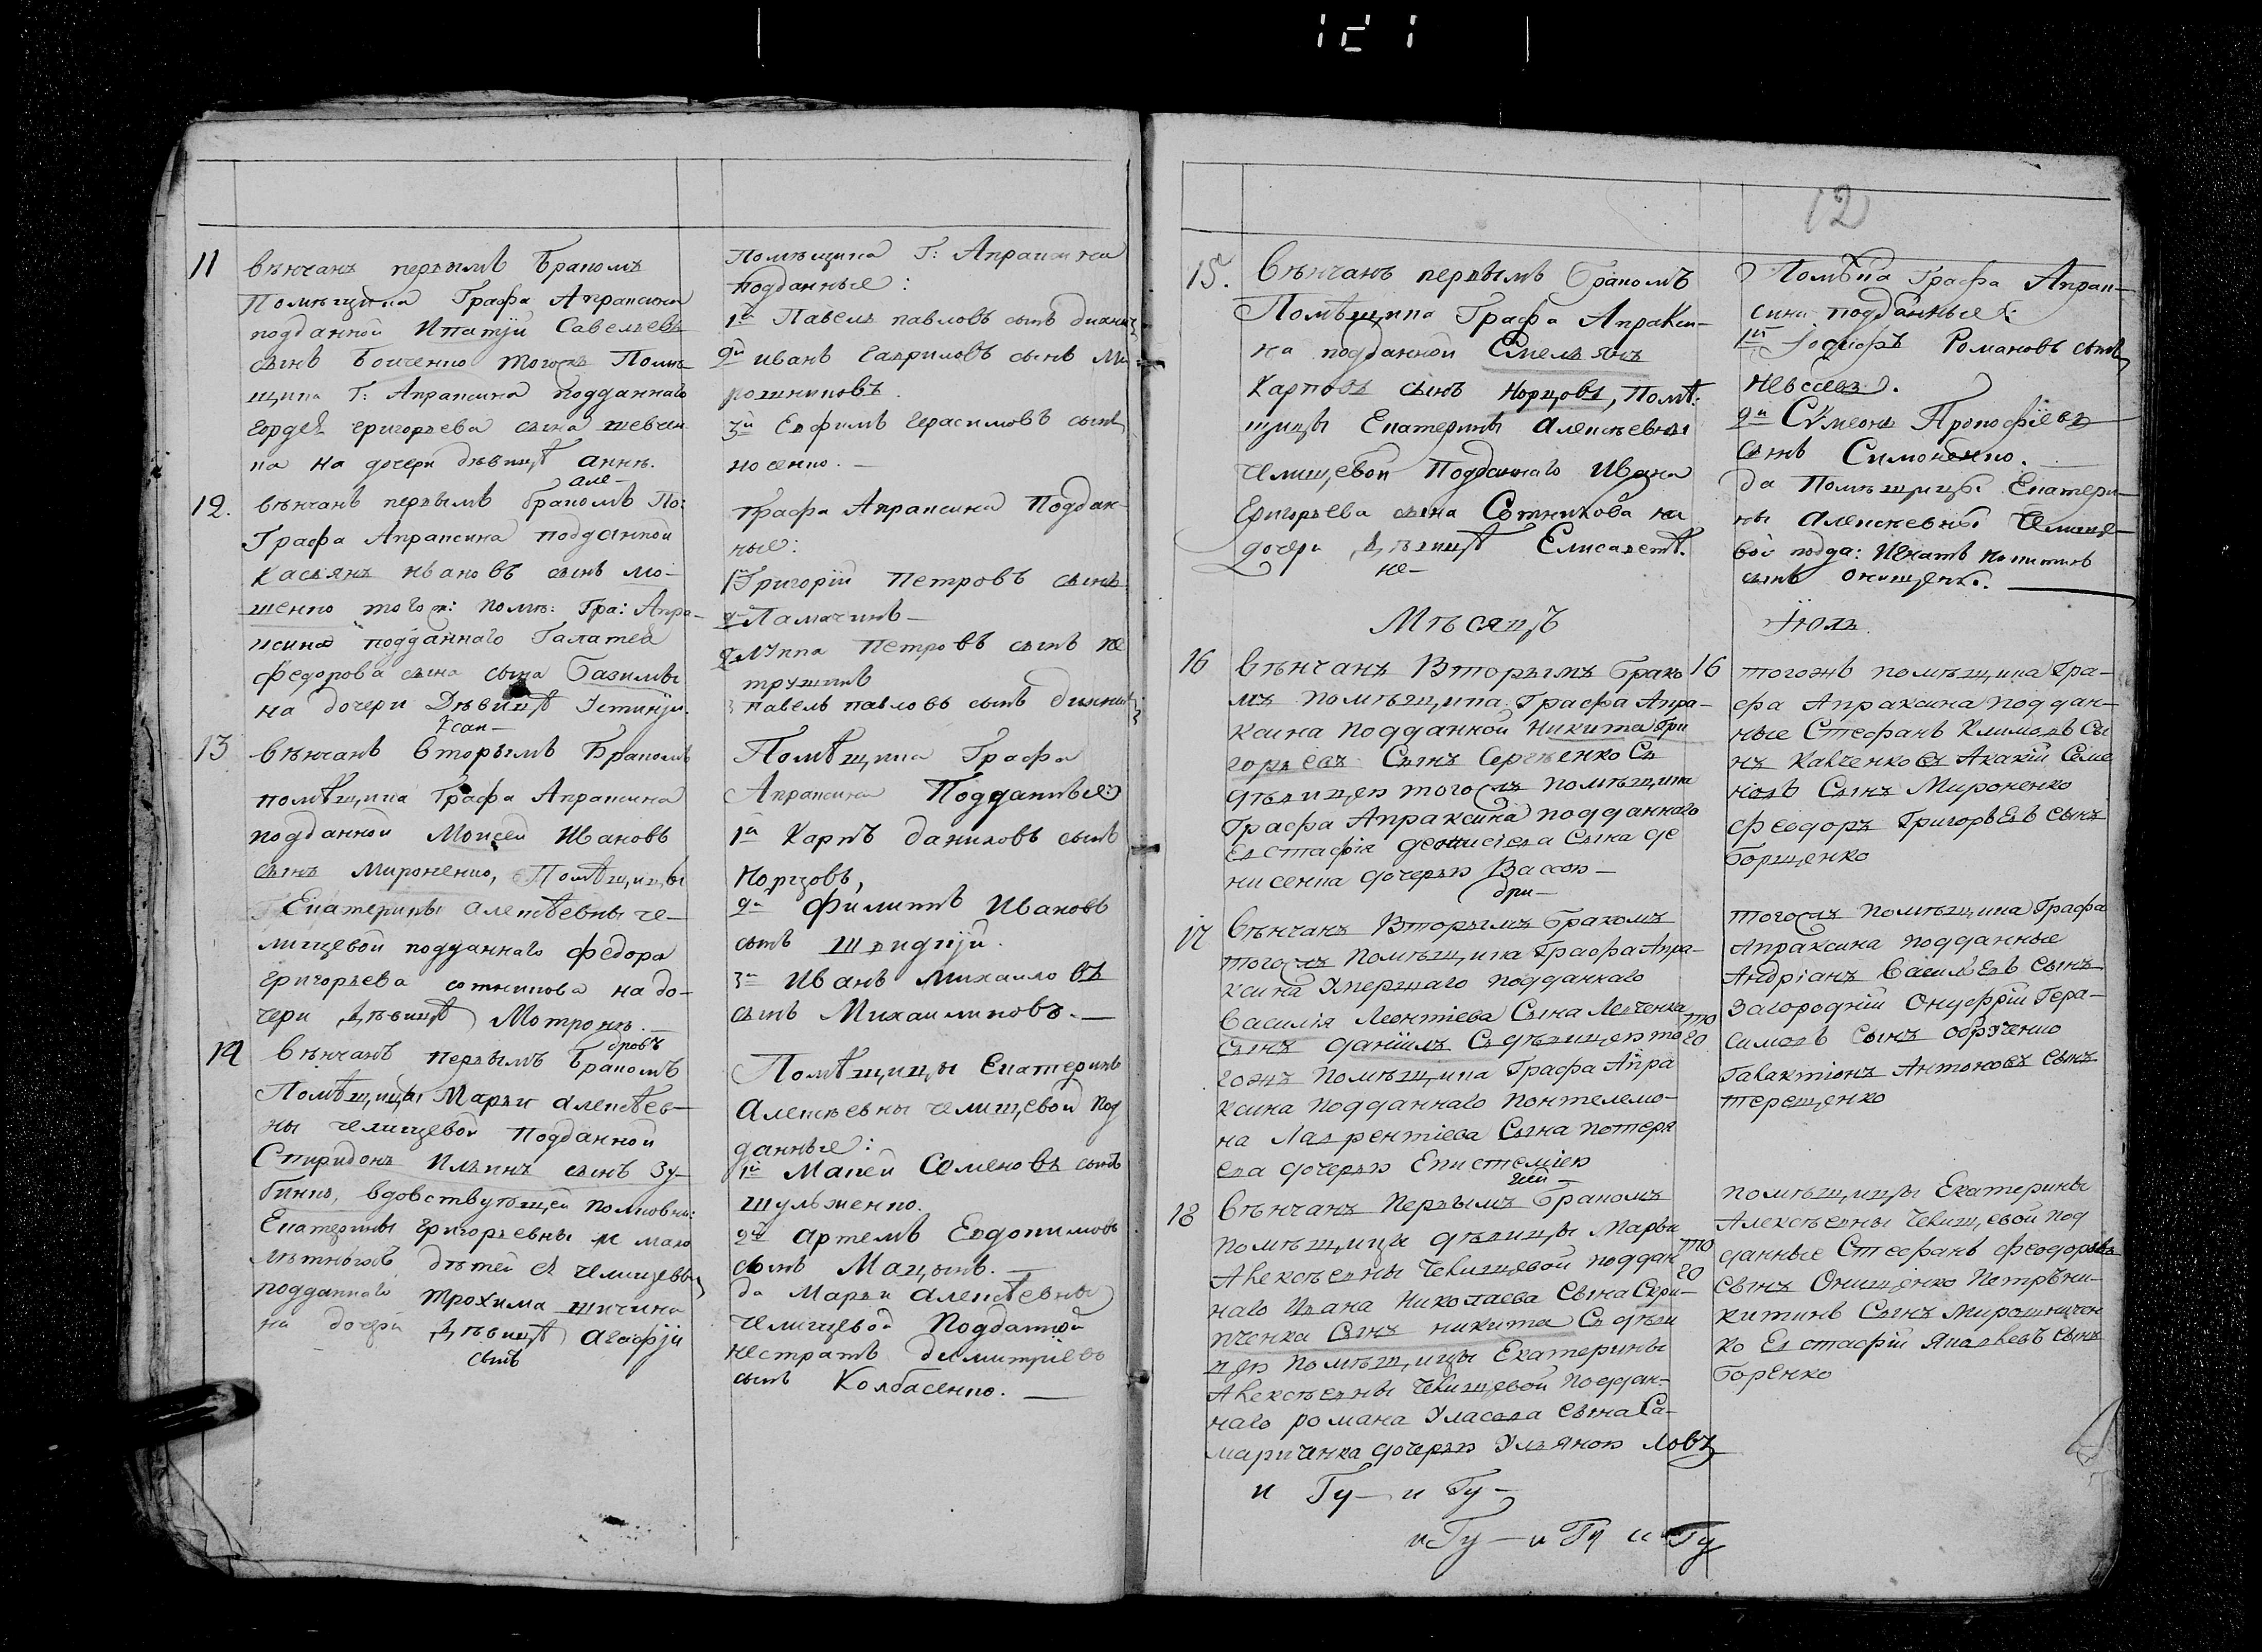 121
11
вѣнчанъ первымъ бракомъ
Помѣщика Графа Апраксина
подданной Ипатїй Савельевъ
сынъ Бойченко тогожъ Помѣ-
щика Г: Апраксина подданнаго
гордѣя григорьева сына шевчен
ка на дочери дѣвицѣ аннѣ.
але-
Помѣщика Г: Апраксина
подданные:
1й Павелъ павловъ сынъ
2й иванъ гавриловъ сынъ Ми
рошниковъ.
3й Евфимъ Герасимовъ сынъ
носенко.
12.
вѣнчанъ первымъ бракомъ По:
Графа Апраксина подданной
Касьянъ ивановъ сынъ мо-
шенко тогож: помѣ: Гра: Апра-
ксина подданнаго Галатей
федорова сына сына
на дочери Дѣвицѣ Устинїи.
ксан-
Графа Апраксина Поддан-
ные:
1й Григорїй Петровъ сынъ
Ламачинъ
2й Петровъ сынъ пе
трушинъ
3 павелъ павловъ сынъ
13
вѣнчанъ вторымъ Бракомъ
помѣщика Графа Апраксина
подданной Моисей Ивановъ
сынъ мироненко, Помѣщицы
Екатерины алексѣевны че-
лищевой подданнаго федора
григорьева сотникова на до-
чери дѣвицѣ Мотронѣ.
дровъ
Помѣщика Графа
Апраксина Подданные:
1й Карпъ даниловъ сынъ
Норцовъ,
2й Филиппъ Ивановъ
сынъ
3й Иванъ Михайловъ
сынъ Михайликовъ.
14
вѣнчанъ первымъ Бракомъ
Помѣщицы Марьи алексѣев-
ны челищевой Подданной
Спиридонъ Ильинъ сынъ Зу-
бинко, вдовствующей полковни:
Екатерины григорьевны и мало
лѣтныхъ дѣтей ея челищевы
подданнаго Трохима шичина
на дочери дѣвицѣ агафїи
сынъ
Помѣщицы Екатерины
Алексѣевны челищевой Под
данные:
1й Макей Семеновъ сынъ
шульженко.
2й артемъ Евдокимовъ
сынъ Мацынъ.
да Марьи алексѣевны
челищевой Подданной
нестратъ димитрїевъ
сынъ Колбасенко.
12
15.
вѣнчанъ первымъ бракомъ
Помѣщика Графа Апракси-
на подданной Емельянъ
Карповъ сынъ Норцовъ, Помѣ:
щицы Екатерины алексѣевны
челищевой Подданнаго Ивана
Григорьева сына Сотникова на
дочери дѣвицѣ Елисаветѣ.
не-
Помѣщика Графа Апрак-
сина подданные:
1й Іосифъ Романовъ сынъ
2й Сѵмеонъ Прокофїевъ
сынъ Симоненко.
да Помѣщицы Екатери-
ны алексѣевны Челище-
вой подда: Игнатъ никитинъ
сынъ онищенко.
Мѣсяцъ Їюль.
16
вѣнчанъ Вторымъ брако
мъ помѣщика Графа Апра-
ксина подданной Никита Гри
горьевъ Сынъ Сергѣенко Съ
дѣвицею тогожъ помѣщика
Графа Апраксина подданнаго
Евстафія денисіева Сына де
нисенка дочерью Вассою
дри-
16
тогожъ помѣщика Гра-
фа Апраксина поддан-
ные Стефанъ Климовъ Сы
нъ Кавченковъ Акакій Семе
новъ Сынъ Мироненко
феодоръ Григорьевъ сынъ
Борщенко
17
вѣнчанъ Вторымъ бракомъ
тогожъ помѣщика Графа Апра-
ксина Умершаго подданнаго
Василія Леонтіева Сына Левченка
Сынъ даніилъ Съ дѣвицею то
гожъ помѣщика Графа Апра
ксина подданнаго Понтелемо-
на Лаврентіева Сына потеря
ева дочерью Епистеміею
гій
то
20
тогожъ помѣщика Графа
Апраксина подданные
Андріанъ Васильевъ Сынъ
Загородній Онуфрій Гера-
симовъ Сынъ обрученко
Галактіонъ Антоновъ Сынъ
терещенко
18
вѣнчанъ Первымъ Бракомъ
помѣщицы дѣвицы Марьи
Алексѣевны Челищевой поддан
наго Ивана Николаева Сына Скри-
пченка Сынъ никита Съ дѣви
цею помѣщицы Екатерины
Алексѣевны Челищевой поддан-
наго романа Уласова Сына Са-
мариченка дочерью Ульяною ловъ
то
20
помѣщицы Екатерины
Алексѣевны Челищевой под
данные Стефанъ феодоровъ
Сынъ Онищенко Петръ Ни-
китинъ Сынъ мирошничен
ко Евстафій Яковлевъ Сынъ
Боренко
и Гу- и Гу-
и Гу- и Гу и Гу